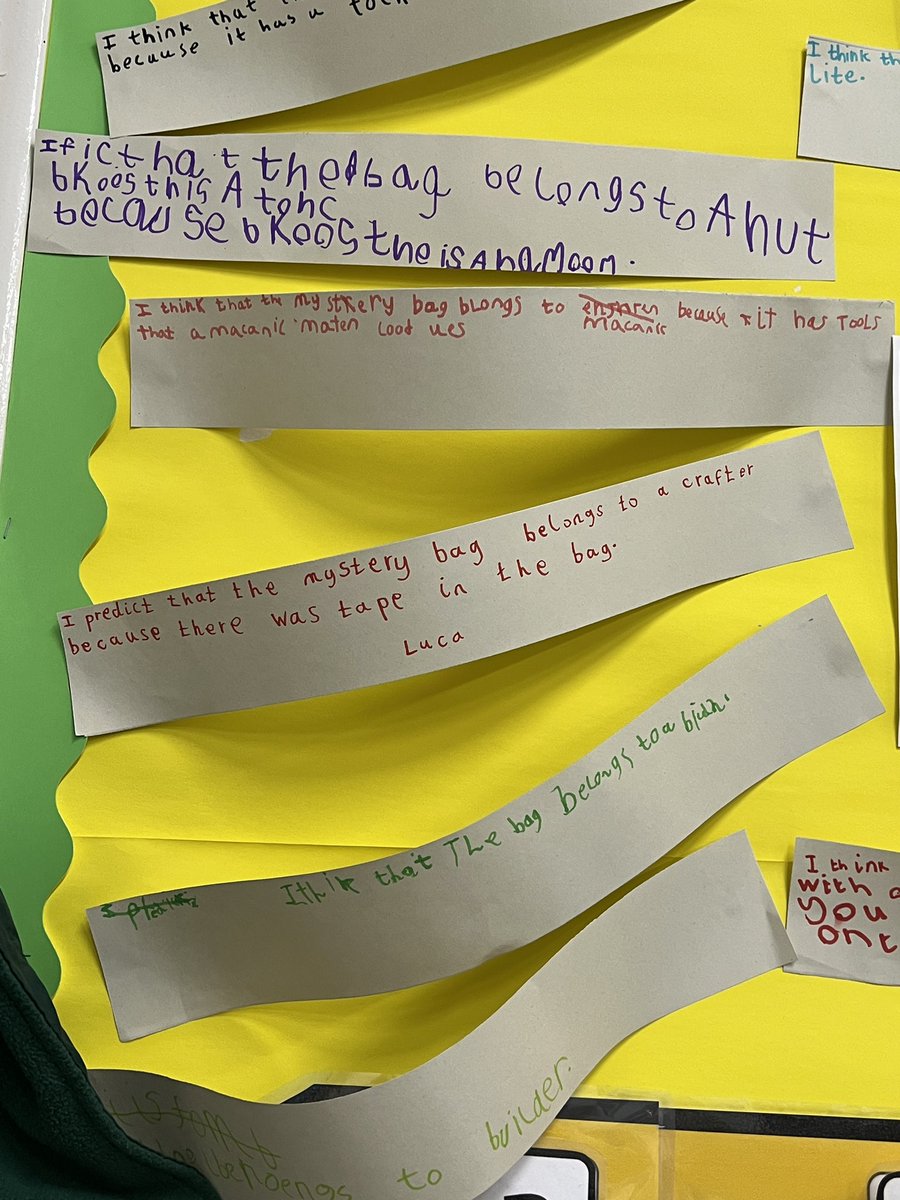 I think that
because it has a
I think th
Lite.
If ict ha t the bag belongs to A hut
bKoos this A tohc
because bKoos the is A haMoom.
I think that the mystkery bag blongs to because it has TOOLS
macanic
that a macanic maten cood ues
I predict that the mystery bag belongs to a crafter
because there was tape in the bag.
Luca
I thik that The bag Belongs to a
I think
with
you
ont
to builder.